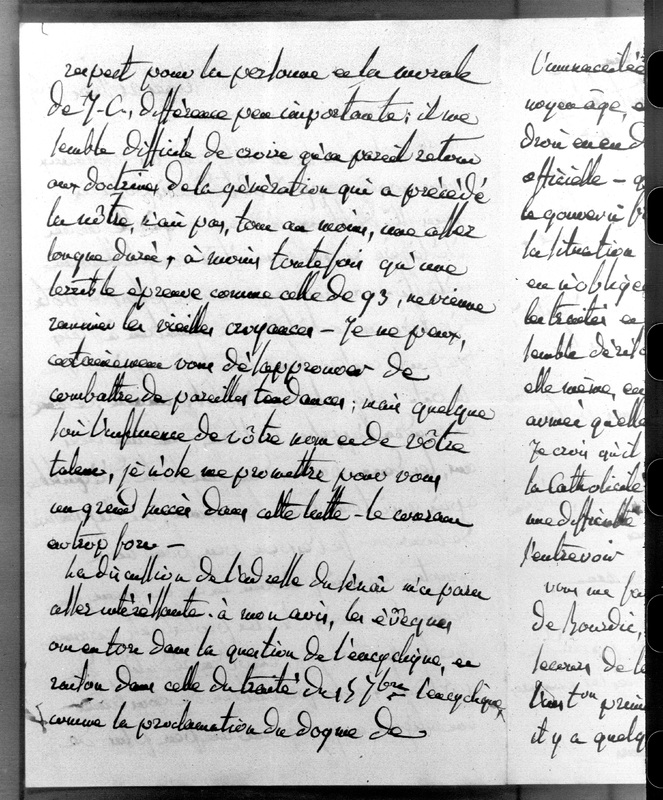 respect pour la personne et la morale
de J-C., différence peu importante ; il me
semble difficile de croire qu'un pareil retour
aux doctrines de la génération qui a précédé
la nôtre, n'ait pas, tout au moins, une assez
longue durée, à moins toutefois qu'une
terrible épreuve comme celle de 93, ne vienne
ranimer les vieilles croyances - Je ne peux,
certainement vous désapprouver de
combattre de pareilles tendances ; mais quelque
soit l'influence de vôtre nom et de vôtre
talent, je n'ose me promettre pour vous
un grand succès dans cette lutte - le courant
est trop fort -
La discussion de l'adresse du sénat m'a paru
assez intéressante. à mon avis, les évêques
ont eu tort dans la question de l'encyclique, et
raison dans celle du traité du 15 7bre l'encyclique,
comme la proclamation du dogme de
l'immaculée
moyen âge, e
droit et en d
officielle - q
le gouvern fr
la situation
en n'obligea
les traités en
semble dériso
elle même, en
armée qu'elle
Je crois qu'il
la Catholicité
une difficulté
l'entrevoir
vous me fa
de Bourdic,
secours de l
l'un ton prem
il y a quelq